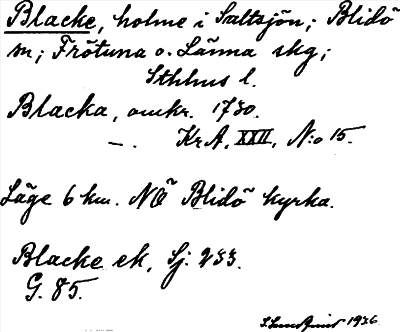 Blacke, holme i Saltsjön; Blidö
sn; Frötuna o. Länna skg;
Sthlms l.
Blacka, omkr. 1730.
—. Kr A, XXII, N:o 15.
Läge 6 km. NÖ Blidö kyrka.
Blacke ek, Sj. 233.
G. 85.
1936.